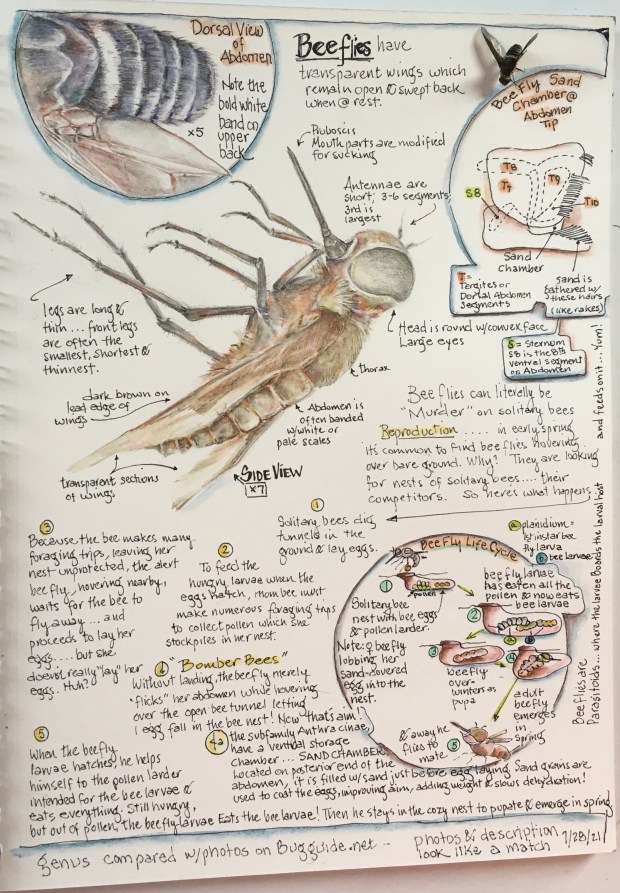 Dorsal View
of
Abdomen
Note the
bold white
band on
upper
back
x5
Beeflies have
transparent wings which
remain open & swept back
when @ rest.
Proboscis
Mouthparts are modified
for sucking
Antennae are
short; 3-6 segments,
3rd is
largest
Bee Fly Sand
Chamber@
Abdomen
Tip
T8
T7
T9
T10
S8
Sand
chamber
Sand is
gathered w/
these hairs
(like rakes)
T=
Tergites or
Dorsal Abdomen
Segments
S = Sternum
S8 is the 8th
ventral segment
on Abdomen
legs are long &
thin ... front legs
are often the
smallest, shortest &
thinnest.
Head is round w/convex face
Large eyes
thorax
dark brown on
lead edge of
wings
Abdomen is
often banded
w/white or
pale scales
transparent sections
of wings
SIDE VIEW
x7
Bee flies can literally be
"Murder" on solitary bees
Reproduction ..... in early spring
it's common to find bee flies hovering
over bare ground. Why? They are looking
for nests of solitary bees.... their
competitors. So here's what happens
1
Solitary bees dig
tunnels in the
ground & lay eggs.
2
To feed the
hungry larvae when the
eggs hatch, mom bee must
make numerous foraging trips
to collect pollen which she
stockpiles in her nest.
3
Because the bee makes many
foraging trips, leaving her
nest unprotected, the alert
bee fly, hovering nearby,
waits for the bee to
fly away ... and
proceeds to lay her
eggs..... but she
doesn't really "lay" her
eggs. Huh?
4 "Bomber Bees"
Without landing, the beefly merely
"flicks" her abdomen while hovering
over the open bee tunnel letting
1 egg fall in the bee nest! Now that's aim!
4a the Subfamily Anthracinae
have a ventral storage
chamber ... SAND CHAMBER
Located on posterior end of the
abdomen, it is filled w/sand just before egg laying. Sand grains are
used to coat the eggs, improving aim, adding weight & slows dehydration!
5
When the beefly
larvae hatches, he helps
himself to the pollen larder
intended for the bee larvae &
eats everything. Still hungry,
but out of pollen, the beefly larvae Eats the bee larvae! Then he stays in the cozy nest to pupate & emerge in spring
Bee Fly Life Cycle
a planidium =
1st instar bee
fly larva
b bee larvae
1
pollen
Solitary bee
nest with bee eggs
& pollen larder.
Note: ♀ beefly
lobbing her
sand-covered
egg into the
nest.
bee fly larvae
has eaten all the
pollen & now eats
bee larvae
2
3
4
beefly
over-
winters as
pupa
adult
beefly
emerges
in
spring
& away he
flies to
mate
5
Beeflies are
Parasitoids... where the larvae floods the larval host and feeds on it... Yum!
genus compared w/photos on Bugguide.net --
photos & description
look like a match
7/28/21